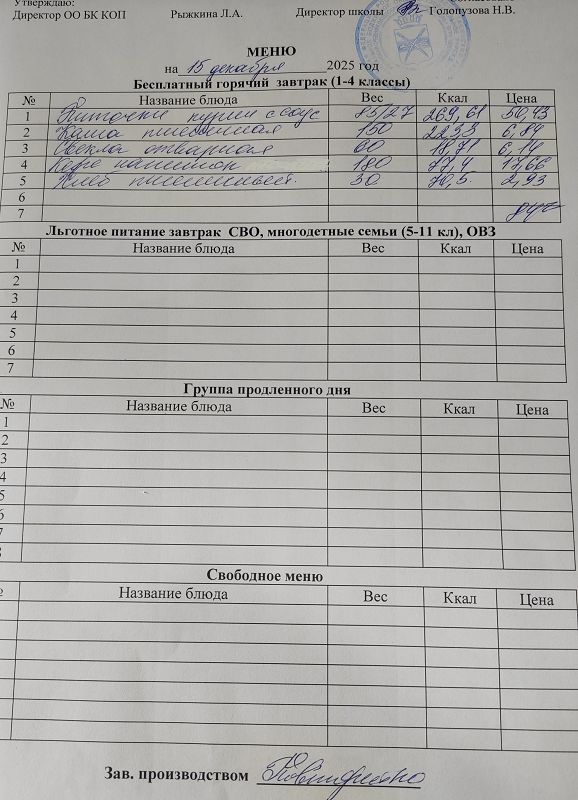 Утверждаю:
Директор ОО БК КОП Рыжкина Л.А. Директор школы Голопузова Н.В.
МЕНЮ
на 15 декабря 2025 год
Бесплатный горячий завтрак (1-4 классы)
№ Название блюда Вес Ккал Цена
1 Биточки курин с соус 85/27 269,61 50,43
2 Каша пшеничная 150 6,84
3 Свекла отварная 60 18,71
4 Кофе напиток 180 77,4 17,66
5 Хлеб 30 70,5 2,93
6
7
Льготное питание завтрак СВО, многодетные семьи (5-11 кл), ОВЗ
№ Название блюда Вес Ккал Цена
1
2
3
4
5
6
7
Группа продленного дня
№ Название блюда Вес Ккал Цена
1
2
3
4
5
6
7
Свободное меню
Название блюда Вес Ккал Цена
Зав. производством